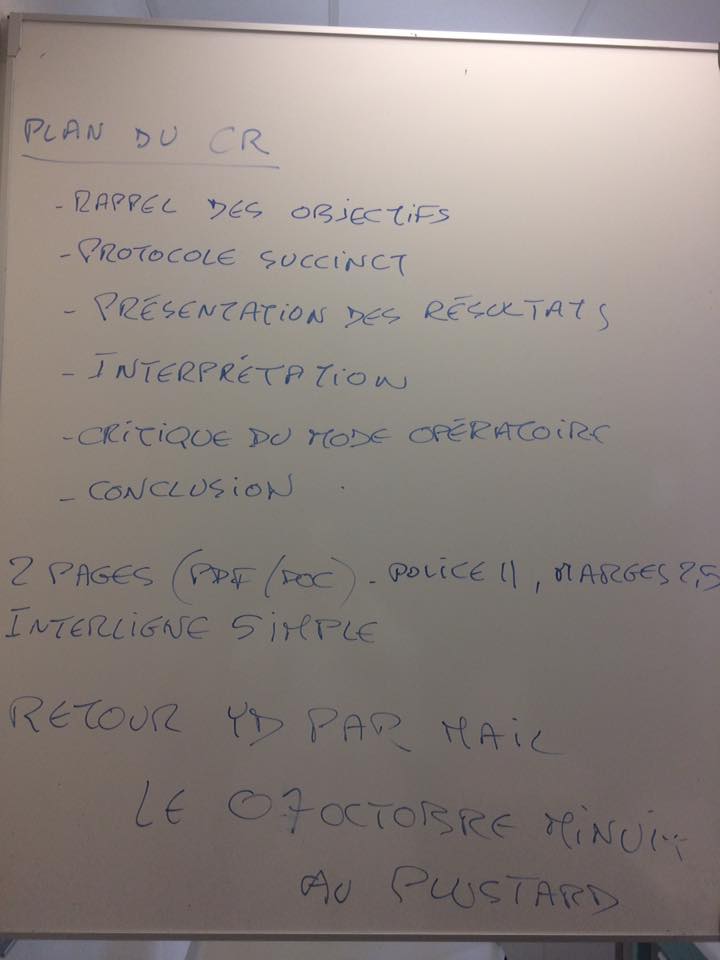 PLAN DU CR
- RAPPEL DES OBJECTIFS
- PROTOCOLE SUCCINCT
- PRÉSENTATION DES RÉSULTATS
- INTERPRÉTATION
- CRITIQUE DU MODE OPÉRATOIRE
- CONCLUSION
2 PAGES (PDF/DOC). POLICE 11, MARGES 2,5
INTERLIGNE SIMPLE
RETOUR YD PAR MAIL
LE 07 OCTOBRE MINUIT
AU PLUS TARD